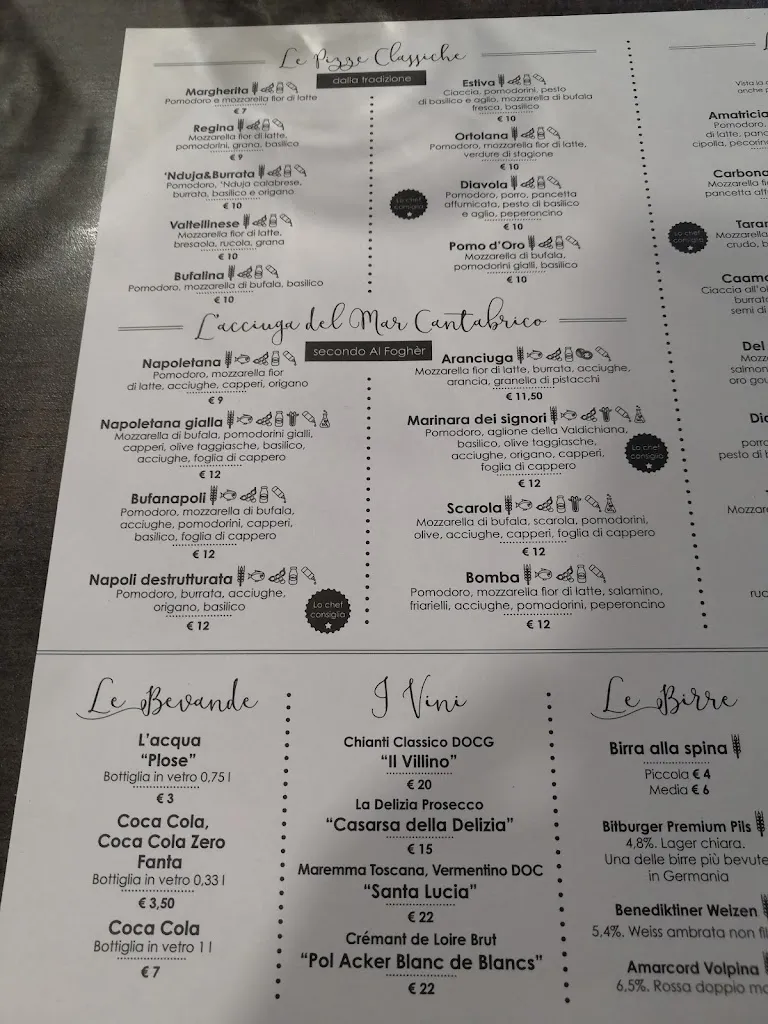 Le Pizze Classiche
dalla tradizione
Margherita
Pomodoro e mozzarella fior di latte
€ 7
Regina
Mozzarella fior di latte,
pomodorini, grana, basilico
€ 9
'Nduja&Burrata
Pomodoro, 'Nduja calabrese,
burrata, basilico e origano
€ 10
Valtellinese
Mozzarella fior di latte,
bresaola, rucola, grana
€ 10
Bufalina
Pomodoro, mozzarella di bufala, basilico
€ 10
Estiva
Ciaccia, pomodorini, pesto
di basilico e aglio, mozzarella di bufala
fresca, basilico
€ 10
Ortolana
Pomodoro, mozzarella fior di latte,
verdure di stagione
€ 10
Diavola
Pomodoro, porro, pancetta
affumicata, pesto di basilico
e aglio, peperoncino
€ 10
Lo chef
consiglia
Pomo d'Oro
Mozzarella di bufala,
pomodorini gialli, basilico
€ 10
L'acciuga del Mar Cantabrico
secondo Al Foghèr
Napoletana
Pomodoro, mozzarella fior
di latte, acciughe, capperi, origano
€ 9
Napoletana gialla
Mozzarella di bufala, pomodorini gialli,
capperi, olive taggiasche, basilico,
acciughe, foglia di cappero
€ 12
Bufanapoli
Pomodoro, mozzarella di bufala,
acciughe, pomodorini, capperi,
basilico, foglia di cappero
€ 12
Napoli destrutturata
Pomodoro, burrata, acciughe,
origano, basilico
€ 12
Lo chef
consiglia
Aranciuga
Mozzarella fior di latte, burrata, acciughe,
arancia, granella di pistacchi
€ 11,50
Marinara dei signori
Pomodoro, aglione della Valdichiana,
basilico, olive taggiasche,
acciughe, origano, capperi,
foglia di cappero
€ 12
Lo chef
consiglia
Scarola
Mozzarella di bufala, scarola, pomodorini,
olive, acciughe, capperi, foglia di cappero
€ 12
Bomba
Pomodoro, mozzarella fior di latte, salamino,
friarielli, acciughe, pomodorini, peperoncino
€ 12
Vista la
anche p
Amatricia
Pomodoro,
di latte, panc
cipolla, pecorino
Carbona
Mozzarella fi
pancetta aff
Lo chef
consiglia
Taran
Mozzarella
crudo, b
Caamo
Ciaccia all'ol
burrat
semi di
Del
Mozz
salmon
oro gou
Dia
porro
pesto di b
Mozzar
ruc
Le Bevande
L'acqua
"Plose"
Bottiglia in vetro 0,75 l
€ 3
Coca Cola,
Coca Cola Zero
Fanta
Bottiglia in vetro 0,33 l
€ 3,50
Coca Cola
Bottiglia in vetro 1 l
€ 7
I Vini
Chianti Classico DOCG
"Il Villino"
€ 20
La Delizia Prosecco
"Casarsa della Delizia"
€ 15
Maremma Toscana, Vermentino DOC
"Santa Lucia"
€ 22
Crémant de Loire Brut
"Pol Acker Blanc de Blancs"
€ 22
Le Birre
Birra alla spina
Piccola € 4
Media € 6
Bitburger Premium Pils
4,8%. Lager chiara.
Una delle birre più bevute
in Germania
Benediktiner Weizen
5,4%. Weiss ambrata non fil
Amarcord Volpina
6,5%. Rossa doppio ma